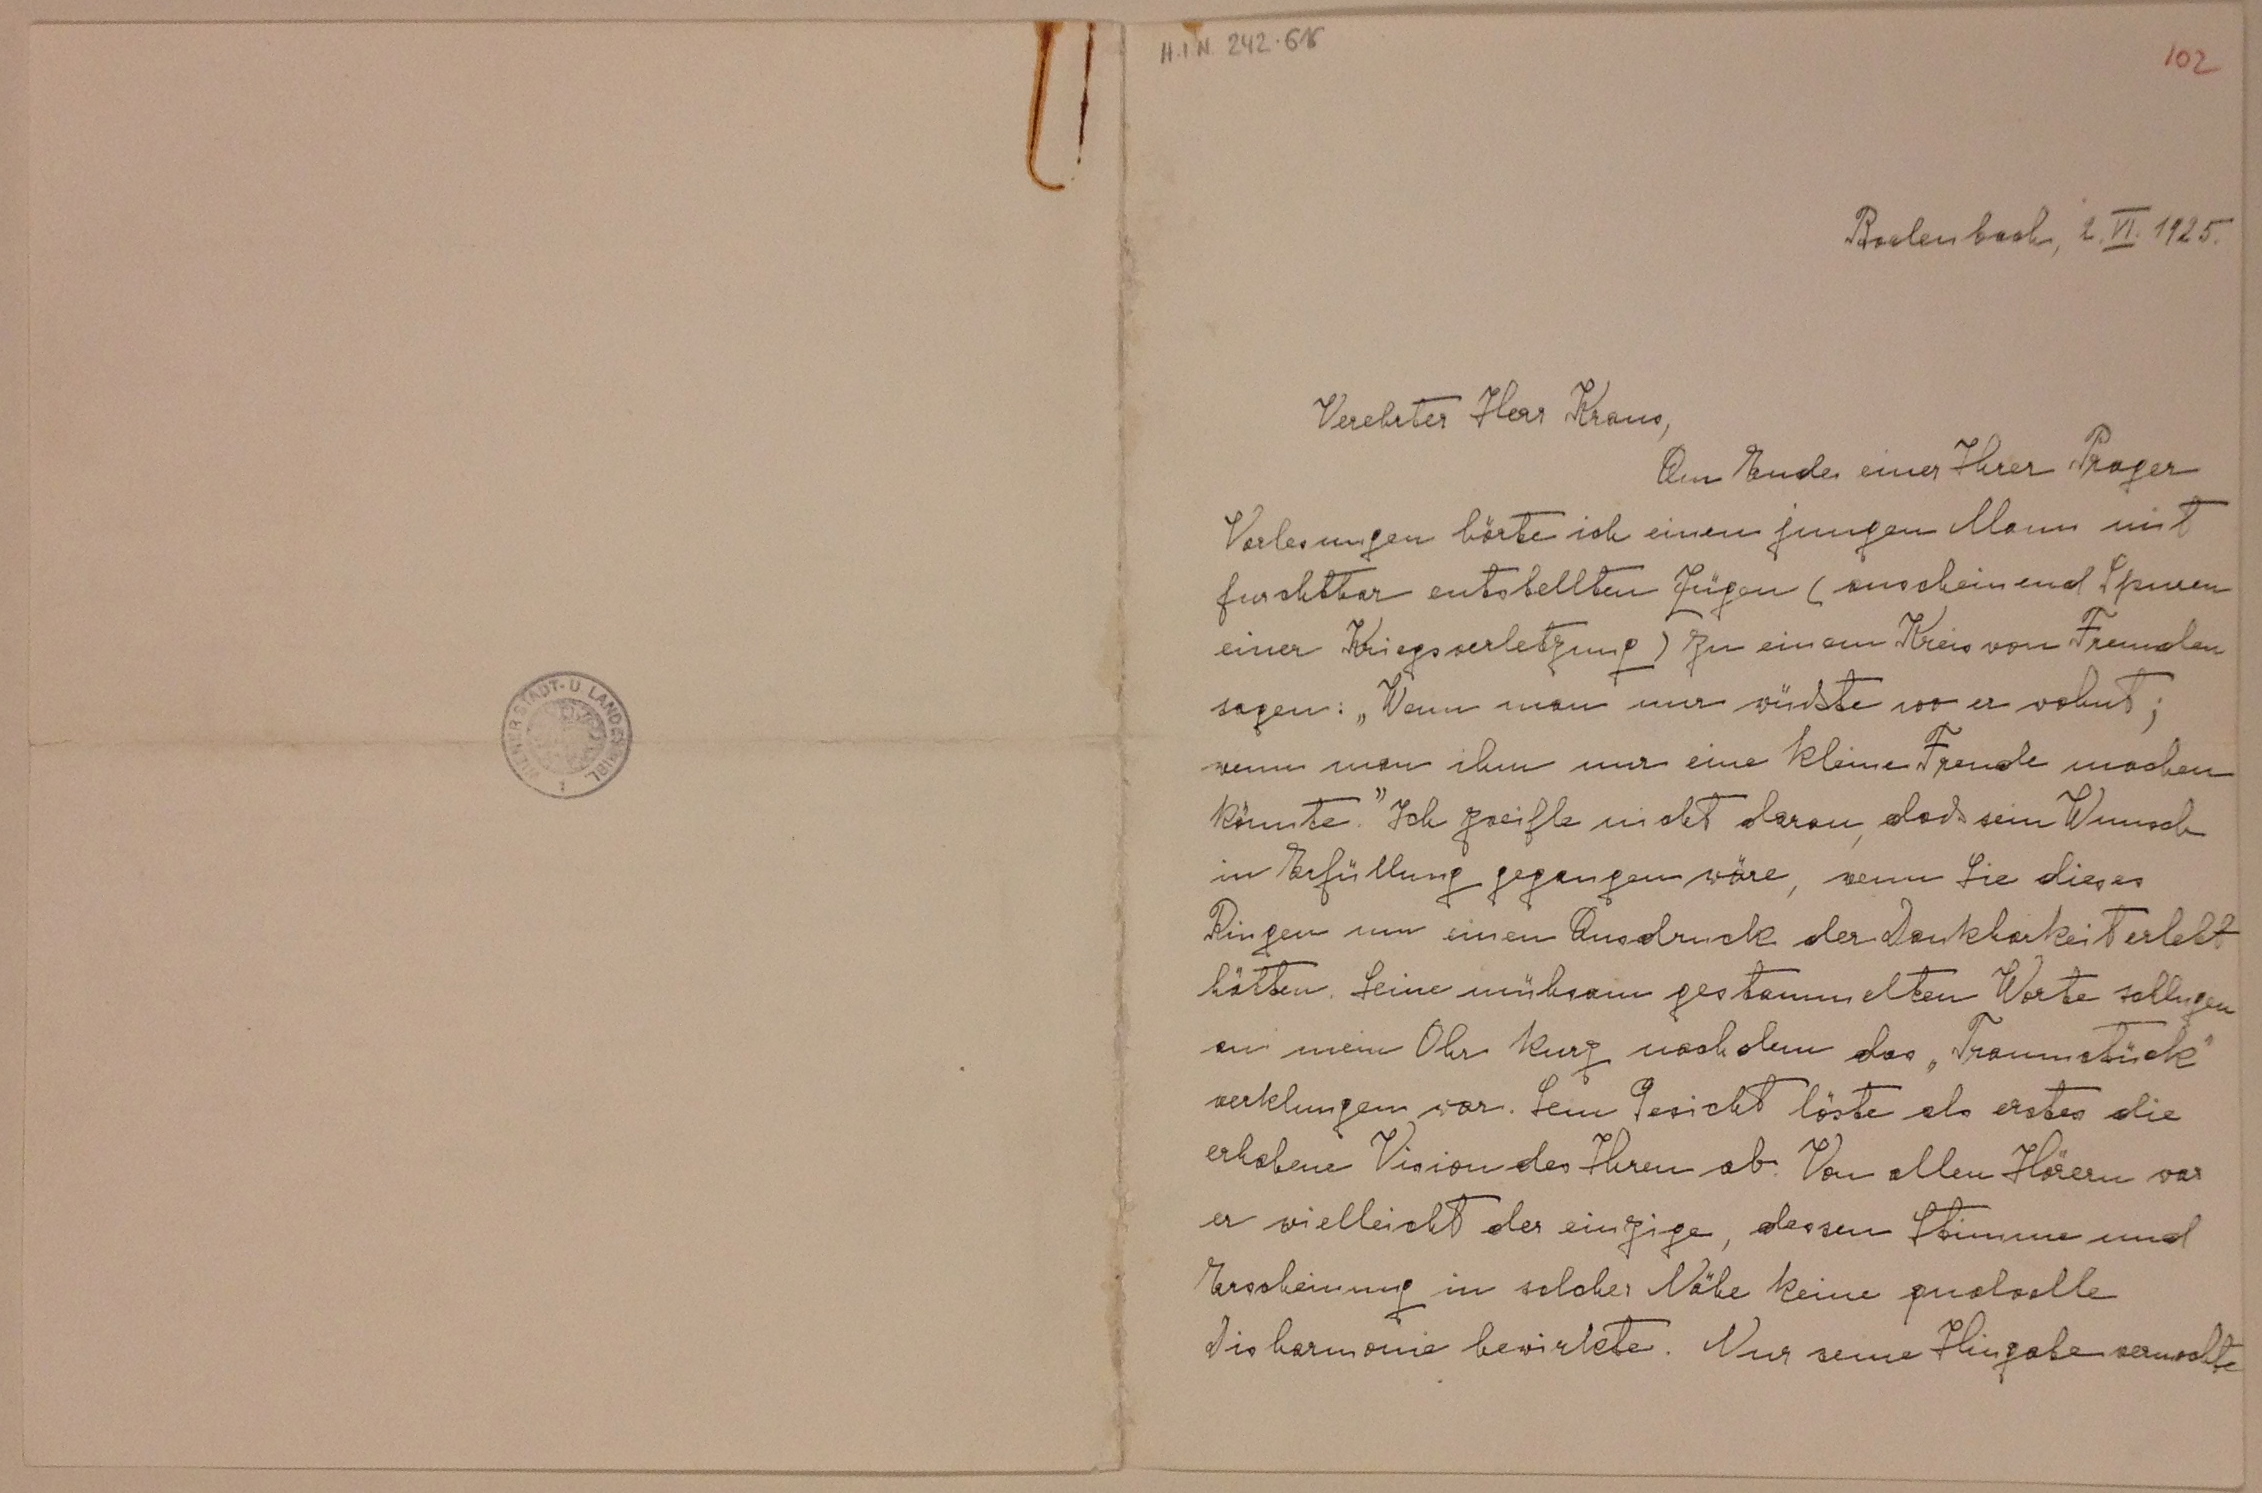 WIENER STADT- U. LANDESBIBL.
H.I.N. 242.618
102
Bodenbach, 2. VI. 1925.
Verehrter Herr Kraus,
Am Ende einer Ihrer Prager
Vorlesungen hörte ich einen jungen Mann mit
furchtbar entstellten Zügen (anscheinend Spuren
einer Kriegsverletzung) zu einem Kreis von Fremden
sagen: „Wenn man nur wüsste wo er wohnt;
wenn man ihm nur eine kleine Freude machen
könnte.” Ich zweifle nicht daran, dass sein Wunsch
in Erfüllung gegangen wäre, wenn Sie dieses
Ringen um einen Ausdruck der Dankbarkeit erlebt
hätten. Seine mühsam gestammelten Worte schlugen
an mein Ohr kurz nachdem das „Traumstück”
verklungen war. Sein Gesicht löste als erstes die
erhabene Vision des Ihren ab. Von allen Hörern war
er vielleicht der einzige, dessen Stimme und
Erscheinung in solcher Nähe keine qualvolle
Disharmonie bewirkte. Nur seine Hingabe vermochte